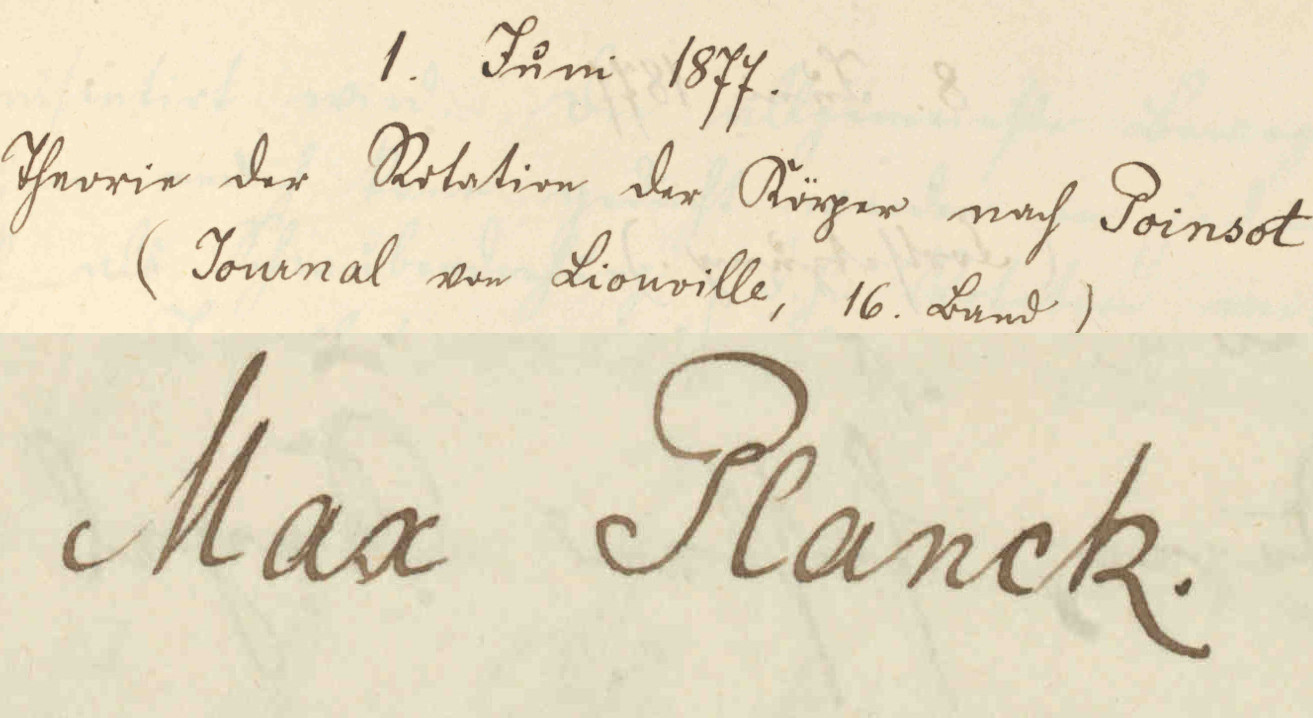 1. Juni 1877.
Theorie der Rotation der Körper nach Poinsot
(Journal von Liouville, 16. Band)
Max Planck.